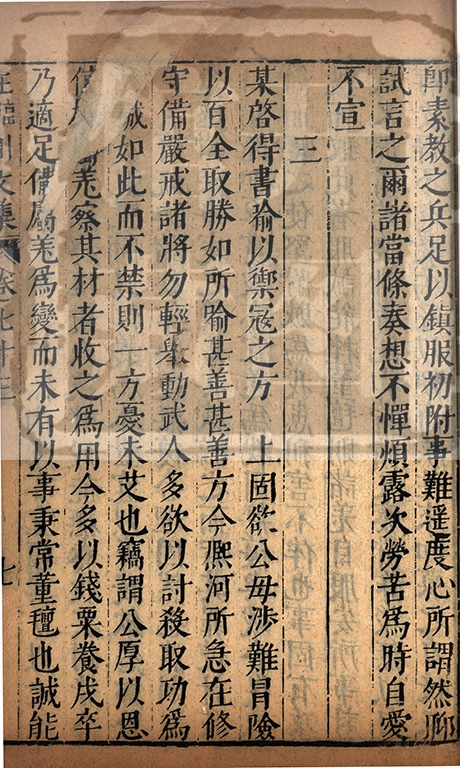 即素教之兵足以鎮服初附事難遥度心所謂然聊
試言之爾諸當條奏想不憚煩露次勞苦爲時自愛
不宣
三
某啓得書喻以禦冦之方 上固欲公毋渉難冒險
以百全取勝如所喻甚善甚善方今熈河所急在修
守備嚴戒諸將勿輕舉動武人多欲以討殺取功爲
如此而不禁則一方憂未艾也竊謂公厚以恩
羌察其材者收之爲用今多以錢粟養戍卒
乃適足備屬羌爲變而未有以事秉常董氊也誠能
臨川文集 卷七十三
七